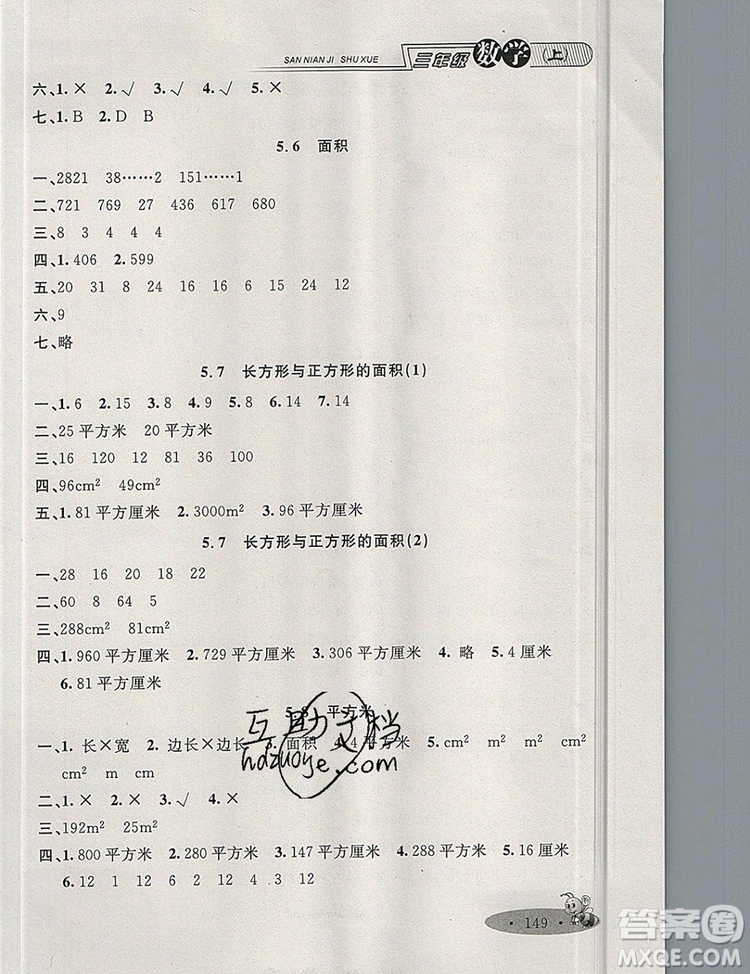 SAN NIAN JI SHU XUE 三年级 数学 (上)
六、1.× 2.√ 3.√ 4.√ 5.×
七、1.B 2.D B
5.6 面积
一、2821 38……2 151……1
二、721 769 27 436 617 680
三、8 3 4 4 4
四、1.406 2.599
五、20 31 8 24 16 15 24 12
六、9
七、略
5.7 长方形与正方形的面积(1)
一、1.6 2.15 3.8 4.9 5.8 6.14 7.14
二、25平方米 20平方米
三、16 120 12 36 100
四、96cm² 49cm²
五、1.81平方厘米 2.3000m² 3.96平方厘米
5.7 长方形与正方形的面积(2)
一、28 16 20 18 22
二、60 8 8
三、288cm² 81cm²
四、1.960平方厘米 2.729平方厘米 3.306平方厘米 4.略 5.4厘米
6.81平方厘米
5.8 平方米
互助文档
hdzuoye.com
一、1.长×宽 2.边长×边长 3.面积 4.4平方厘米 5.cm² m² m² cm²
cm² m cm
二、1.× 2.× 3.√ 4.×
三、192m² 25m²
四、1.800平方米 2.280平方米 3.147平方厘米 4.288平方米 5.16厘米
6.12 12 12 12 12 12 12
·149·
答案圈
MXQE.COM